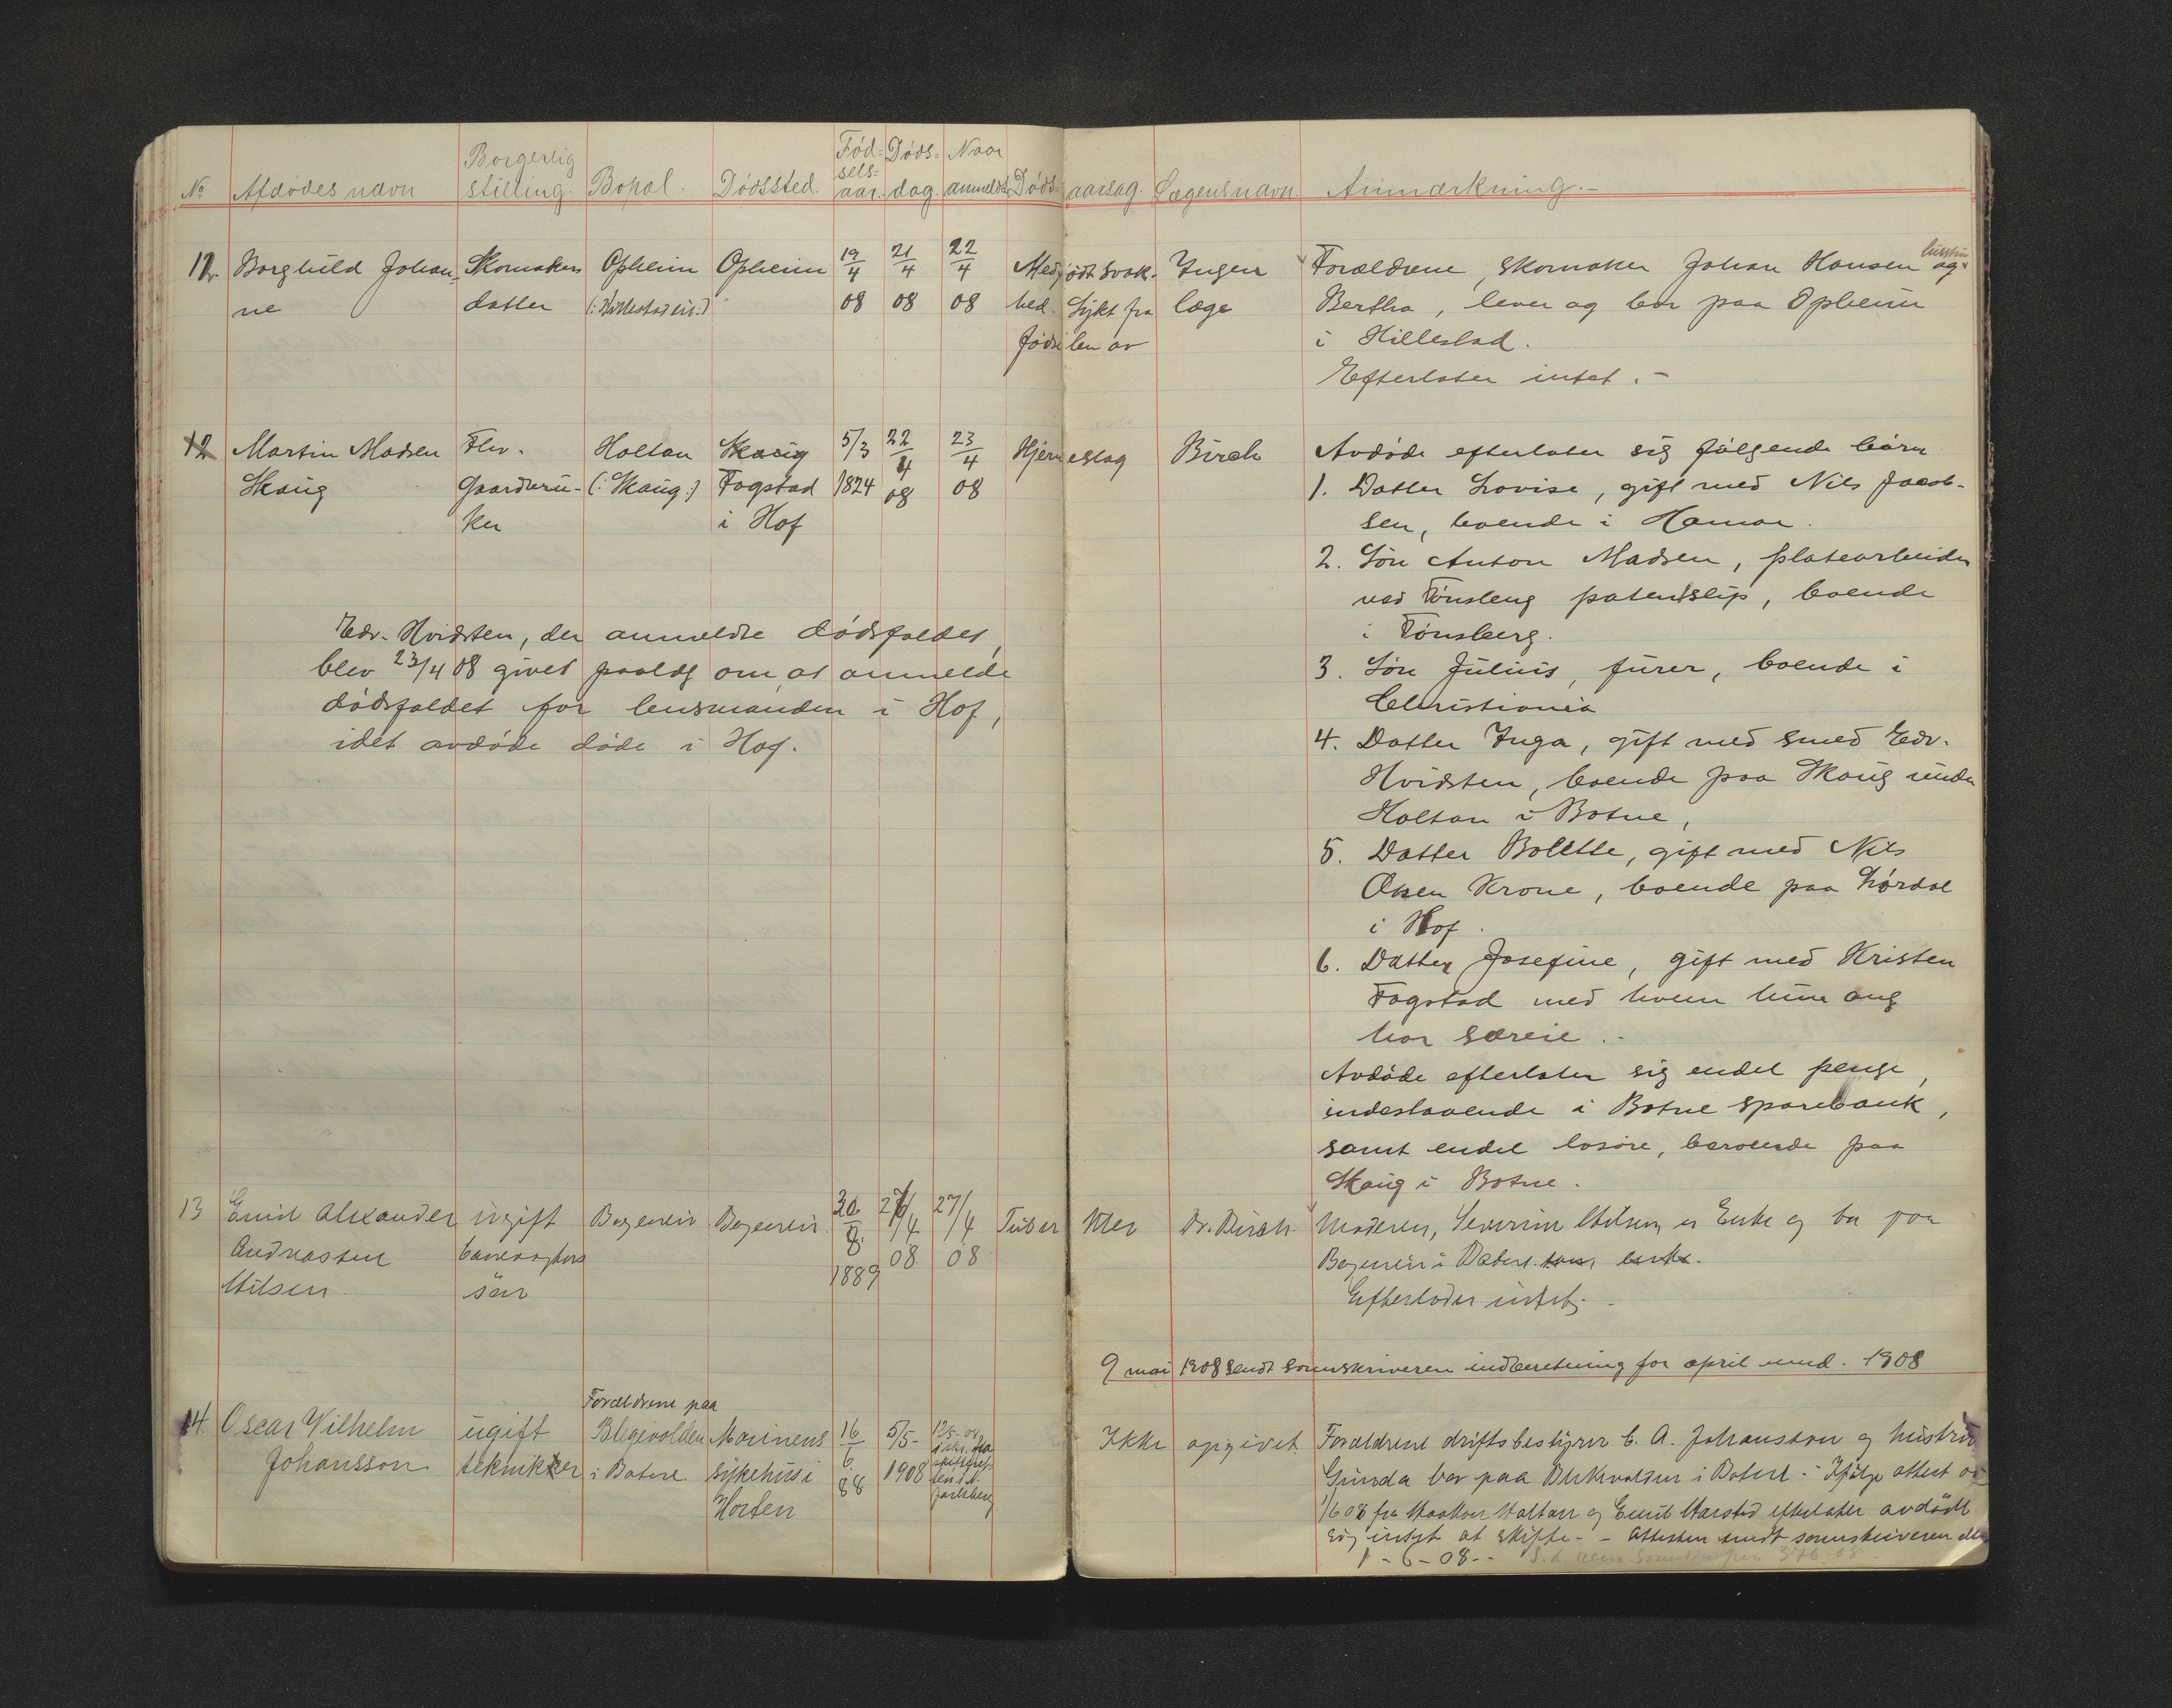 No Afdødes navn Borgerlig stilling. Bopæl. Dødssted. Fød-sels-aar. Døds-dag. Naar anmeldt Døds-aarsag. Lægens navn Anmærkning.-
12. Borghild Johan- Skomakers Opheim Opheim 19/4 21/4 22/4 Medfødt svak- Ingen Forældrene, skomaker Johan Hansen og hustru
ne datter (: Hillestad eie:) 08 08 08 hed. Sykt fra læge Bertha, lever og bor paa Opheim
fødselen av i Hillestad.
Efterlater intet.-
12 Martin Madsen Flv. Holtan Skaug 5/3 22/4 23/4 Hjerneslag Birch Avdøde efterlater sig følgende børn
Skaug Gaardbru- (: Skaug:) Fogstad 1824 08 08 1. Datter Lovise, gift med Nils Jacob-
ker i Hof sen, boende i Hamar.
2. Søn Anton Madsen, platearbeider
ved Tønsberg patentslip, boende
i Tønsberg.
3. Søn Julius, furer, boende i
Christiania
4. Datter Inga, gift med smed Edv.
Hvidsten, boende paa Skaug under
Holtan i Botne,
5. Datter Bolette, gift med Nils
Olsen Krone, boende paa Lørdal
i Hof.
6. Datter Josefine, gift med Kristen
Fogstad med hvem hun ang
har særeie.-
Avdøde efterlater sig endel penge,
indestaaende i Botne sparebank,
samt endel løsøre, beroende paa
Skaug i Botne.
Edv. Hvidsten, der anmeldte dødsfaldet,
blev 23/4 08 givet paalæg om at anmelde
dødsfaldet for lensmanden i Hof,
idet avdøde døde i Hof.
13 Emil Alexander ugift 30/8 27/4 27/4 Tuber kler Dr. Birch. Moderen, Severine Nilsen er Enke og bor paa
Andreassen 1889 08 08 i Botne. enke.
Nilsen. søn Efterlader intet.-
9 mai 1908 sendt sorenskriveren indberetning for april mnd. 1908
Forældrene paa
14 Oscar Wilhelm ugift Blegevolden Marinens 16/6 5/5- Ikke opgivet. Forældrene driftsbestyrer C. A. Johansson og hustru
Johansson tekniker i Botne. sykehus i 88 1908 Gunda bor paa i Botne.- Ifølge attest av
Horten 1/6 08 fra Haakon Holtan og Emil efterlater avdøde
sig intet at skifte.- - Attesten sendt sorenskriveren
1-6-08.-